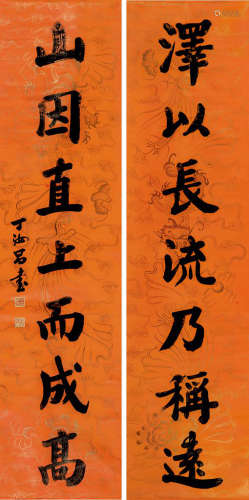 澤以長流乃稱遠
山因直上而成高
丁汝昌書